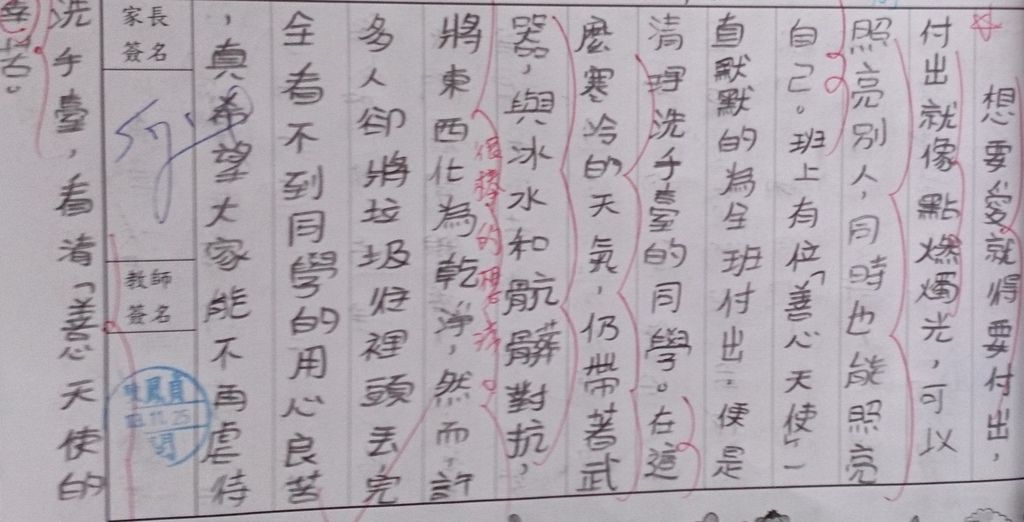 想要愛就得要付出，
付出就像點燃燭光，可以
照亮別人，同時也能照亮
自己。班上有位「善心天使」一
直默默的為全班付出，便是
清理洗手臺的同學。在這
麼寒冷的天氣，仍帶著武
器，與冰水和骯髒對抗，
將東西化為乾淨，然而，許
多人卻將垃圾往裡頭丟，完
全看不到同學的用心良苦
，真希望大家能不再虐待
家長
簽名
教師
簽名
11.25
洗手臺，看清「善心天使的
辛苦。